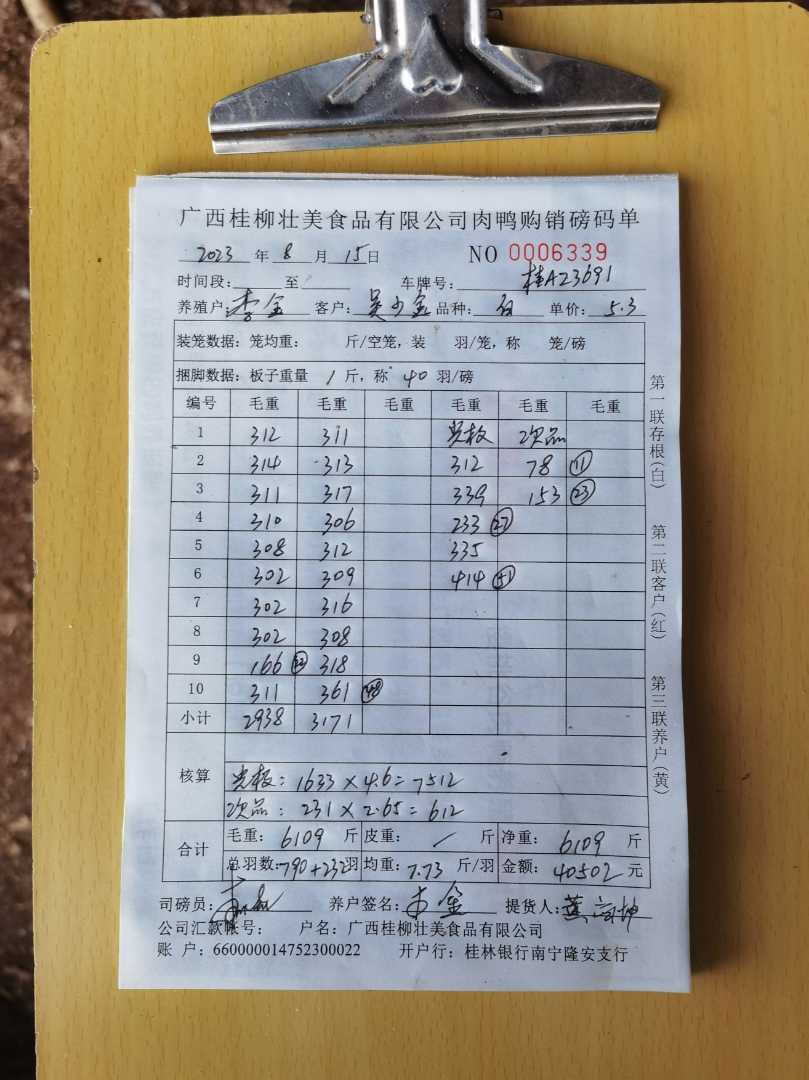 广西桂柳壮美食品有限公司肉鸭购销磅码单
2023 年 8 月 15 日 NO 0006339
时间段: 至 车牌号: 桂A23691
养殖户: 李金 客户: 吴少金 品种: 单价: 5.3
装笼数据: 笼均重: 斤/空笼, 装 羽/笼, 称 笼/磅
捆脚数据: 板子重量 1 斤, 称 40 羽/磅
编号 毛重 毛重 毛重 毛重 毛重 毛重
1 312 311 光板 次品
2 314 313 312 78 ⑪
3 311 317 339 153 ㉓
4 310 306 233 ㉗
5 308 312 335
6 302 309 414
7 302 316
8 302 308
9 166 318
10 311 361 ㊽
小计 2938 3171
核算 光板: 1633 × 4.6 = 7512
次品: 231 × 2.65 = 612
合计 毛重: 6109 斤 皮重: / 斤 净重: 6109 斤
总羽数: 790+232羽 均重: 7.73 斤/羽 金额: 40502 元
司磅员: 养户签名: 李金 提货人:
公司汇款帐号: 户名: 广西桂柳壮美食品有限公司
账 户: 660000014752300022 开户行: 桂林银行南宁隆安支行
第一联存根(白)
第二联客户(红)
第三联养户(黄)